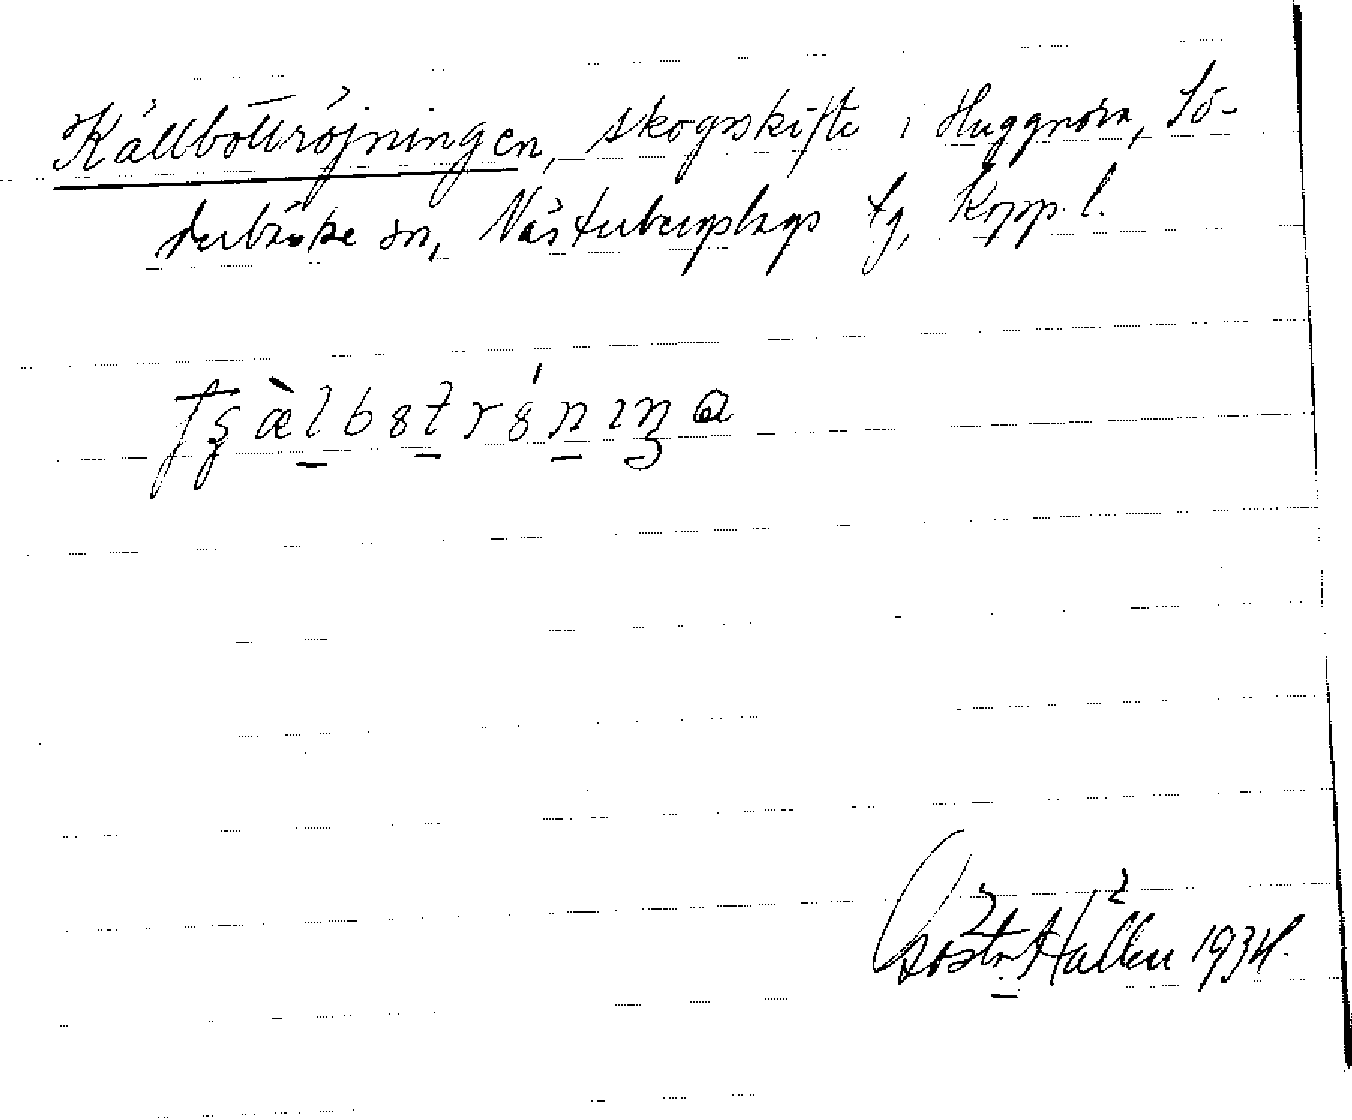 Källbottröjningen, skogsskifte i Huggnora, Sö-
derbärke sn, Västerbergslags tg, Kopp. l.
Gösta Hallén 1934.